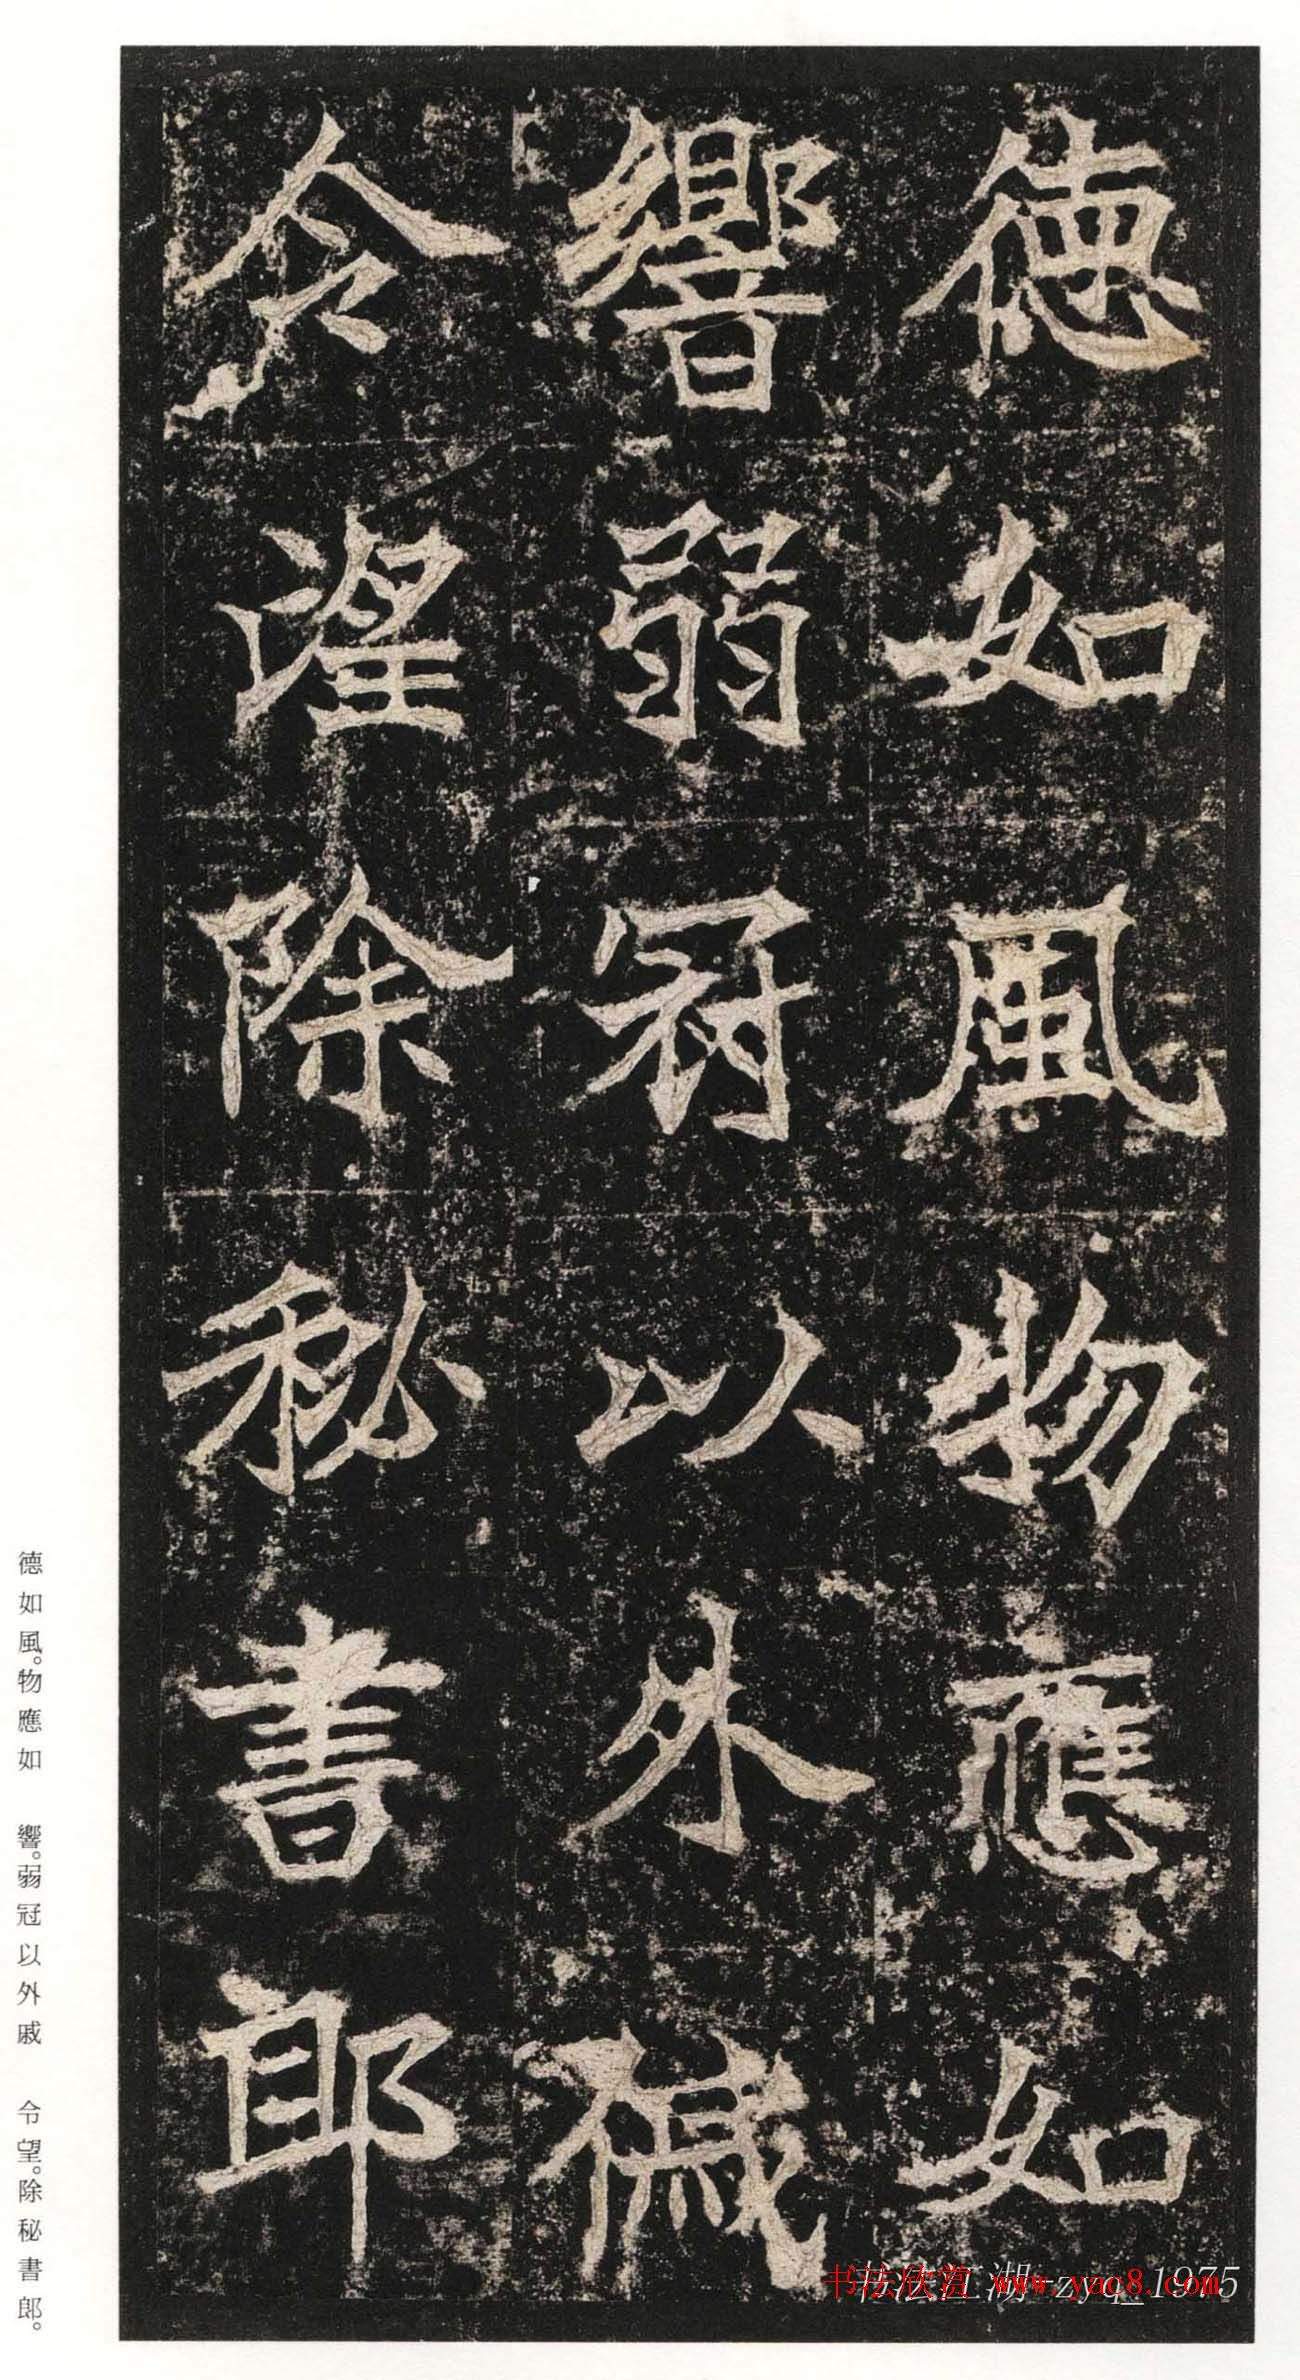 德如風物應如
響弱冠以外戚
令望除秘書郎
德如風。物應如　響。弱冠以外戚　令望。除秘書郎。
书法欣赏 www.zyac8.com
书法江湖 zyq_1975